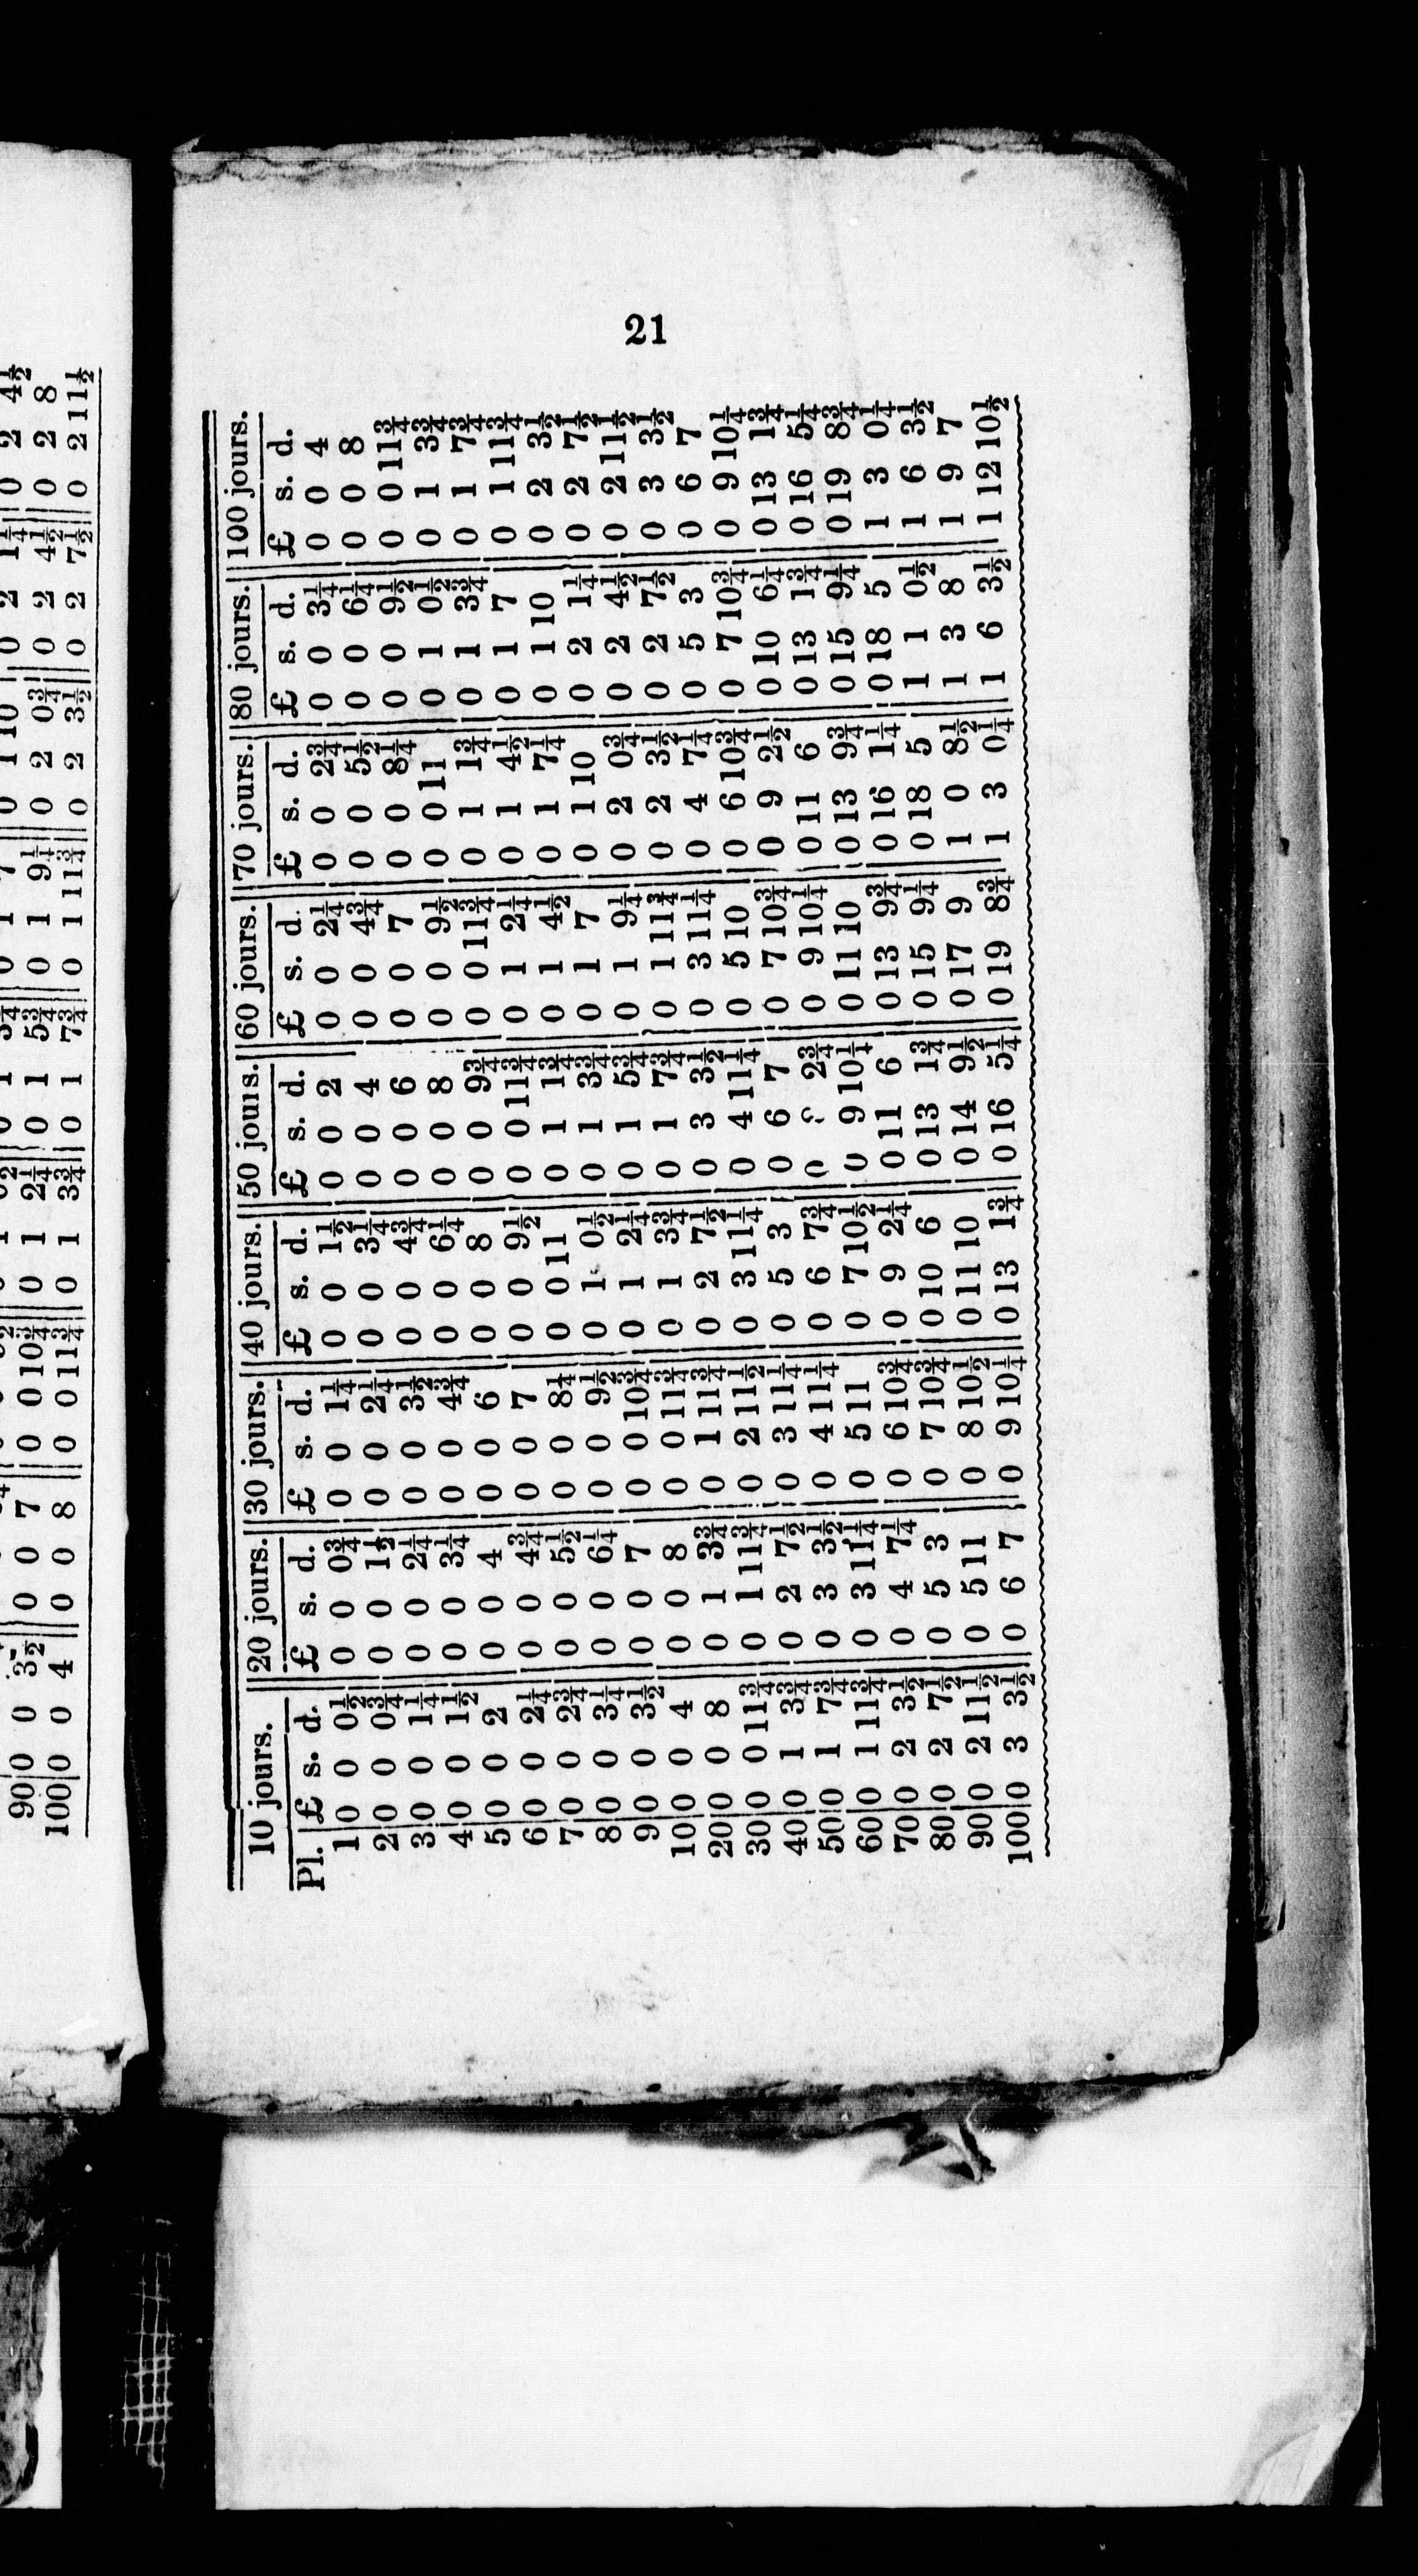 90 0 0 3½ 0 0 7 0 0 10¾ 0 1 2¼ 0 1 5¾ 0 1 9¼ 0 2 0¾ 0 2 4½ 0 2 8
100 0 0 4 0 0 8 0 0 11¾ 0 1 3¾ 0 1 7¾ 0 1 11¾ 0 2 3½ 0 2 7½ 0 2 11½
21
10 jours. 20 jours. 30 jours. 40 jours. 50 jours. 60 jours. 70 jours. 80 jours. 100 jours.
Pl. £ s. d. £ s. d. £ s. d. £ s. d. £ s. d. £ s. d. £ s. d. £ s. d. £ s. d.
1 0 0 0½ 0 0 0¾ 0 0 1¼ 0 0 1½ 0 0 2 0 0 2¼ 0 0 2¾ 0 0 3¼ 0 0 4
2 0 0 0¾ 0 0 1½ 0 0 2¼ 0 0 3¼ 0 0 4 0 0 4¾ 0 0 5½ 0 0 6¼ 0 0 8
3 0 0 1¼ 0 0 2¼ 0 0 3½ 0 0 4¾ 0 0 6 0 0 7 0 0 8¼ 0 0 9½ 0 0 11¾
4 0 0 1½ 0 0 3¼ 0 0 4¾ 0 0 6¼ 0 0 8 0 0 9½ 0 0 11 0 1 0½ 0 1 3¾
5 0 0 2 0 0 4 0 0 6 0 0 8 0 0 9¾ 0 0 11¾ 0 1 1¾ 0 1 3¾ 0 1 7¾
6 0 0 2¼ 0 0 4¾ 0 0 7 0 0 9½ 0 0 11¾ 0 1 2¼ 0 1 4½ 0 1 7 0 1 11¾
7 0 0 2¾ 0 0 5½ 0 0 8¼ 0 0 11 0 1 1¾ 0 1 4½ 0 1 7¼ 0 1 10 0 2 3½
8 0 0 3¼ 0 0 6¼ 0 0 9½ 0 1 0½ 0 1 3¾ 0 1 7 0 1 10 0 2 1¼ 0 2 7½
9 0 0 3½ 0 0 7 0 0 10¾ 0 1 2¼ 0 1 5¾ 0 1 9¼ 0 2 0¾ 0 2 4½ 0 2 11½
10 0 0 4 0 0 8 0 0 11¾ 0 1 3¾ 0 1 7¾ 0 1 11¾ 0 2 3½ 0 2 7½ 0 3 3½
20 0 0 8 0 1 3¾ 0 1 11¾ 0 2 7½ 0 3 3½ 0 3 11¼ 0 4 7¼ 0 5 3 0 6 7
30 0 0 11¾ 0 1 11¾ 0 2 11½ 0 3 11¼ 0 4 11¼ 0 5 10 0 6 10¾ 0 7 10¾ 0 9 10¼
40 0 1 3¾ 0 2 7½ 0 3 11¼ 0 5 3 0 6 7 0 7 10¾ 0 9 2½ 0 10 6¼ 0 13 1¾
50 0 1 7¾ 0 3 3½ 0 4 11¼ 0 6 7¾ 0 2¾ 0 9 10¼ 0 11 6 0 13 1¾ 0 16 5¼
60 0 1 11¾ 0 3 11¼ 0 5 11 0 7 10½ 0 9 10¼ 0 11 10 0 13 9¾ 0 15 9¼ 0 19 8¾
70 0 2 3½ 0 4 7¼ 0 6 10¾ 0 9 2¼ 0 11 6 0 13 9¾ 0 16 1¼ 0 18 5 1 3 0¼
80 0 2 7½ 0 5 3 0 7 10¾ 0 10 6 0 13 1¾ 0 15 9¼ 0 18 5 1 1 0½ 1 6 3½
90 0 2 11½ 0 5 11 0 8 10½ 0 11 10 0 14 9½ 0 17 9 1 0 8½ 1 3 8 1 9 7
100 0 3 3½ 0 6 7 0 9 10¼ 0 13 1¾ 0 16 5¼ 0 19 8¾ 1 3 0¼ 1 6 3½ 1 12 10½